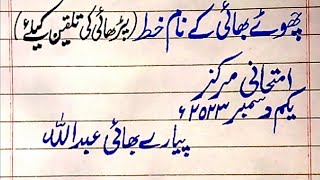 چھوٹے بھائی کے نام خط (پڑھائی کی تلقین کیلئے)
امتحانی مرکز
یکم دسمبر ۲۵۲۳ء
پیارے بھائی عبداللہ